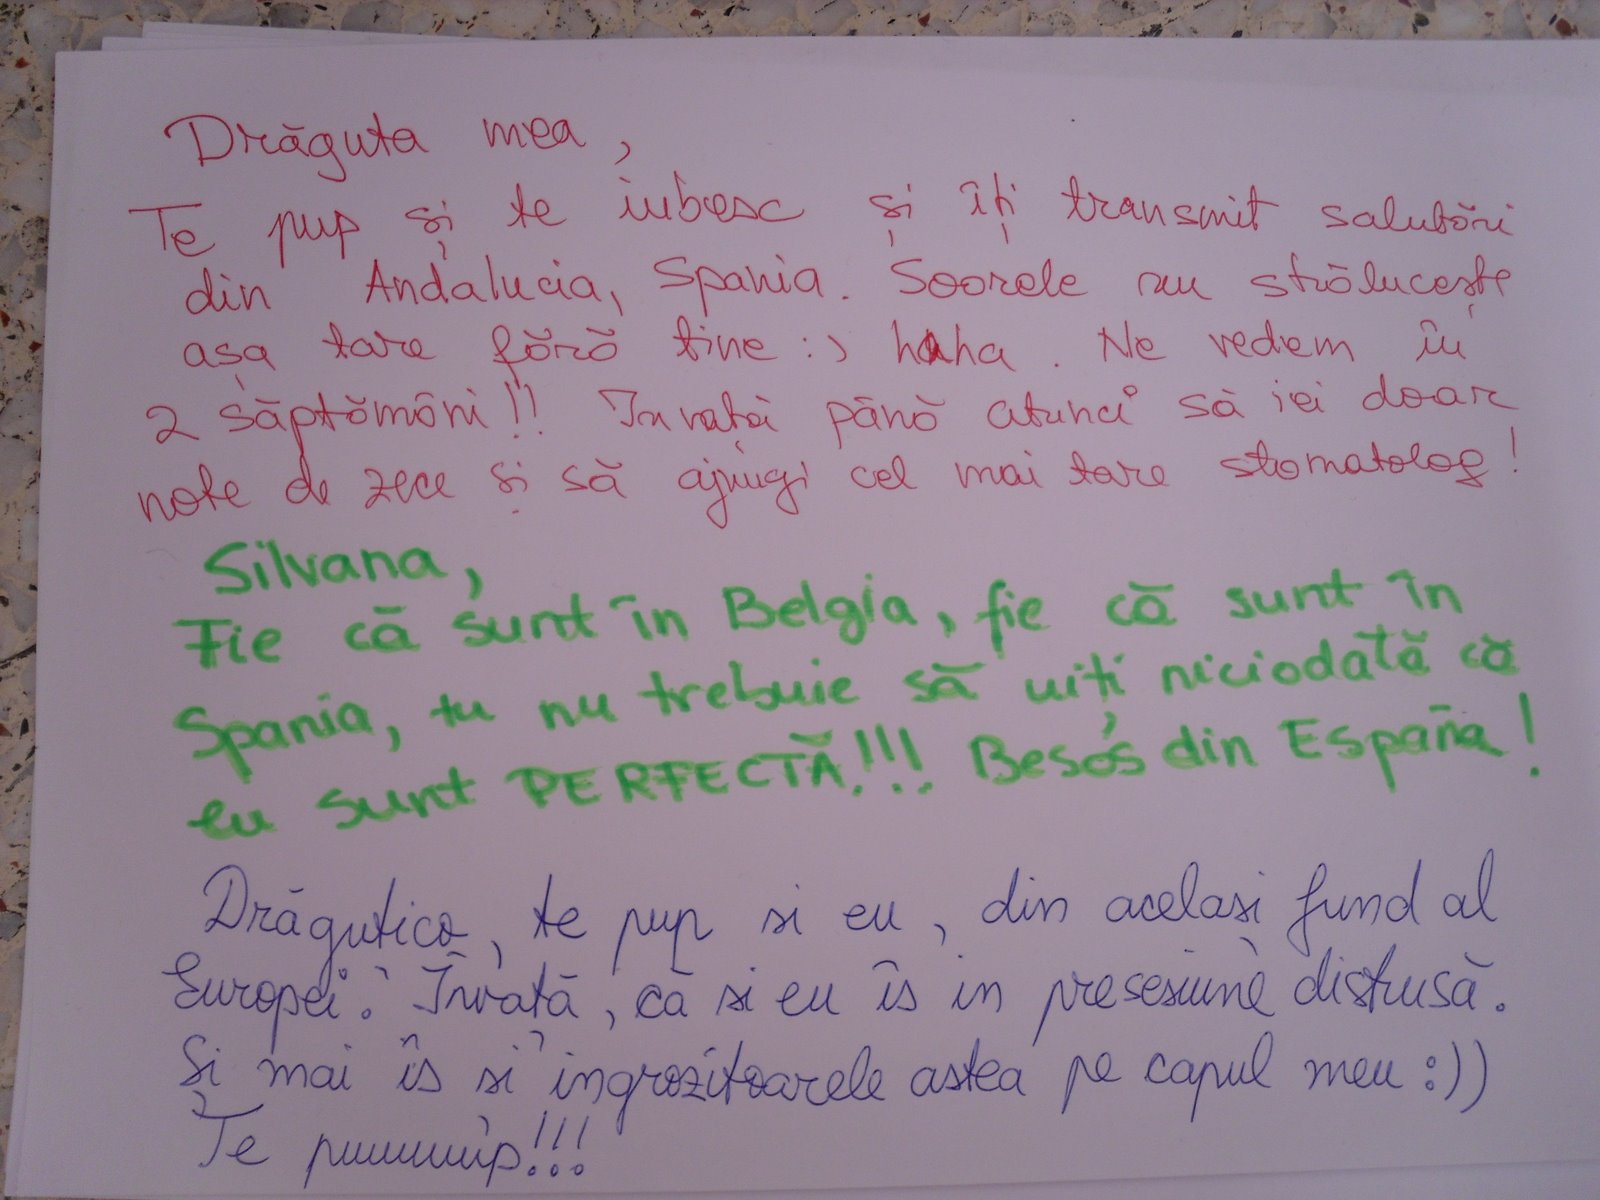 Drăguta mea,
Te pup și te iubesc și îți transmit salutări
din Andalucia, Spania. Soarele nu strălucește
așa tare fără tine :) hahha. Ne vedem în
2 săptămâni!! Învață până atunci să iei doar
note de zece și să ajungi cel mai tare stomatolog!
Silvana,
Fie că sunt în Belgia, fie că sunt în
Spania, tu nu trebuie să uiți niciodată că
eu sunt PERFECTĂ!!! Besos din España!
Drăgutico, te pup si eu, din acelasi fund al
Europei. Învată, că si eu îs in presesiune distrusă.
Și mai îs si ingrozitoarele astea pe capul meu :))
Te puuuuuup!!!